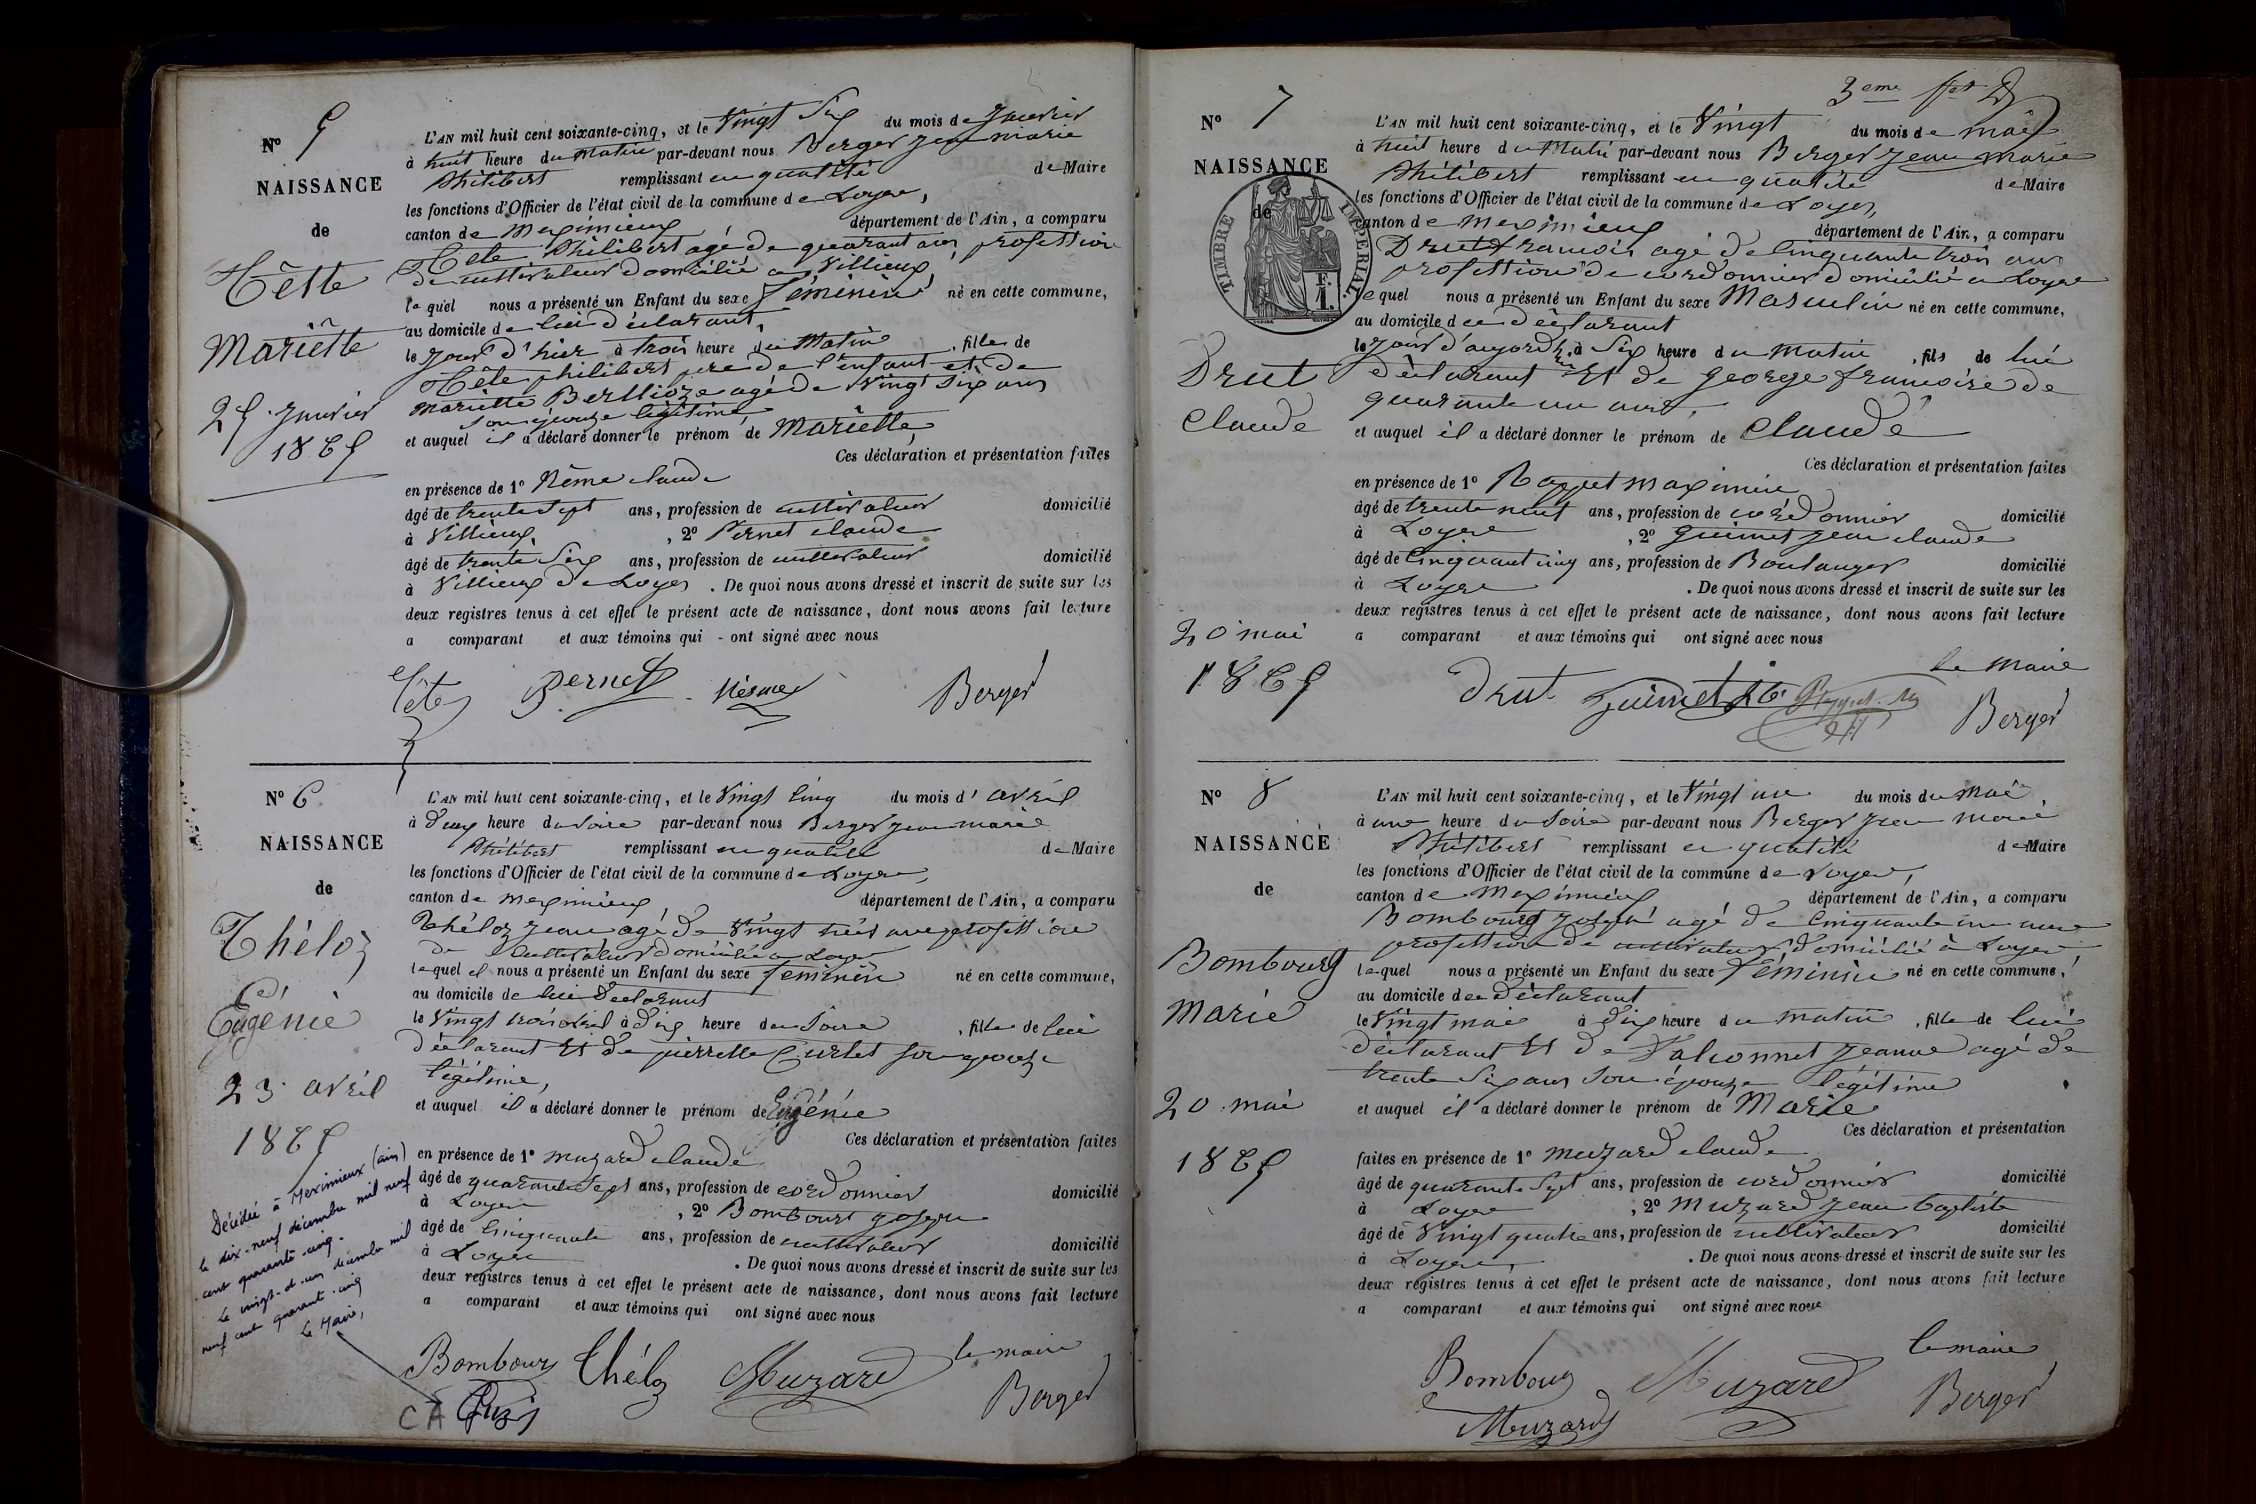 N° 5
NAISSANCE
de
Tête
Mariette
25 Janvier
1865
L'AN mil huit cent soixante-cinq, et le Vingt Six du mois de Janvier
à huit heure du Matin par-devant nous Berger jean marie
Philibert remplissant en qualité de Maire
les fonctions d'Officier de l'état civil de la commune de Loyes,
canton de Meximieux département de l'Ain, a comparu
Tête Philibert agé de quarant ans profession
de cultivateur domicilié a Villieux,
le quel nous a présenté un Enfant du sexe féminin né en cette commune,
au domicile de lui déclarant,
le jour d'hier à trois heure du Matin , fille de
Tête philibert pere de l'enfant et de
mariette Berlioze agé de Vingt Six ans
son épouze légitime
et auquel il a déclaré donner le prénom de Mariette
Ces déclaration et présentation faites
en présence de 1° Néme claude
âgé de trente Sept ans, profession de cultivateur domicilié
à Villieux, , 2° Pernet claude
âgé de trente Six ans, profession de cultivateur domicilié
à Villieux de Loyes . De quoi nous avons dressé et inscrit de suite sur les
deux registres tenus à cet effet le présent acte de naissance, dont nous avons fait lecture
a comparant et aux témoins qui ont signé avec nous
Tête Pernet Nesme Berger
N° 6
NAISSANCE
de
Théloz
Eugénie
23 avril
1865
Décédée à Meximieux (Ain)
le dix-neuf décembre mil neuf
cent quarante-cinq.
Le vingt-et-un décembre mil
neuf cent quarant-cinq
Le Maire,
L'AN mil huit cent soixante-cinq, et le Vingt Cinq du mois d'avril
à deux heure du Soire par-devant nous Berger jean marie
Philibert remplissant en qualité de Maire
les fonctions d'Officier de l'état civil de la commune de Loyes,
canton de meximieux département de l'Ain, a comparu
Théloz jean agé de Vingt huit ans profession
de Cultivateur domicilié a Loyes
lequel il nous a présenté un Enfant du sexe feminin né en cette commune,
au domicile de lui déclarant
le Vingt trois avril à dix heure du Soire , fille de lui
déclarant Et de pierrette Curtet son epouze
légitime,
et auquel il a déclaré donner le prénom de Eugénie
Ces déclaration et présentation faites
en présence de 1° muzard claude
âgé de quarante Sept ans, profession de cordonnier domicilié
à Loyes , 2° Bombourg joseph
âgé de Cinquante ans, profession de cultivateur domicilié
à Loyes . De quoi nous avons dressé et inscrit de suite sur les
deux registres tenus à cet effet le présent acte de naissance, dont nous avons fait lecture
a comparant et aux témoins qui ont signé avec nous
Bombourg Théloz Muzard le maire
Berger
CA
3eme
N° 7
NAISSANCE
de
TIMBRE IMPERIAL
F.
1.
Drut
Claude
20 mai
1865
L'AN mil huit cent soixante-cinq, et le Vingt du mois de mai
à huit heure du Matin par-devant nous Berger jean marie
Philibert remplissant en qualité de Maire
les fonctions d'Officier de l'état civil de la commune de Loyes,
canton de meximieux département de l'Ain, a comparu
Drut francois agé de Cinquante trois ans
profession de cordonnier domicilié a Loyes
lequel nous a présenté un Enfant du sexe Masculin né en cette commune,
au domicile de déclarant
le jour d'aujord'hui à Six heure du matin , fils de lui
déclarant Et de george francoise de
quarante un ans
et auquel il a déclaré donner le prénom de Claude
Ces déclaration et présentation faites
en présence de 1° Rappet maximin
âgé de trente neuf ans, profession de cordonnier domicilié
à Loyes , 2° guimet jean claude
âgé de Cinquant cinq ans, profession de Boulanger domicilié
à Loyes . De quoi nous avons dressé et inscrit de suite sur les
deux registres tenus à cet effet le présent acte de naissance, dont nous avons fait lecture
a comparant et aux témoins qui ont signé avec nous
le maire
Drut Guimet Berger
N° 8
NAISSANCE
de
Bombourg
Marie
20 mai
1865
L'AN mil huit cent soixante-cinq, et le Vingt un du mois du mai
à une heure du Soire par-devant nous Berger jean marie
Philibert remplissant en qualité de Maire
les fonctions d'Officier de l'état civil de la commune de Loyes,
canton de Meximieux département de l'Ain, a comparu
Bombourg joseph agé de Cinquante un ans
profession de cultivateur domicilié à Loyes
lequel nous a présenté un Enfant du sexe Féminin né en cette commune,
au domicile de déclarant
le Vingt mai à dix heure du matin , fille de lui
déclarant Et de Falconnet jeanne agé de
trente Six ans Son épouze légitime
et auquel il a déclaré donner le prénom de Marie
Ces déclaration et présentation
faites en présence de 1° muzard claude
âgé de quarante Sept ans, profession de cordonnier domicilié
à Loyes , 2° Muzard jean baptiste
âgé de Vingt quatre ans, profession de cultivateur domicilié
à Loyes, . De quoi nous avons dressé et inscrit de suite sur les
deux registres tenus à cet effet le présent acte de naissance, dont nous avons fait lecture
a comparant et aux témoins qui ont signé avec nous
le maire
Bombourg Muzard Berger
Muzard